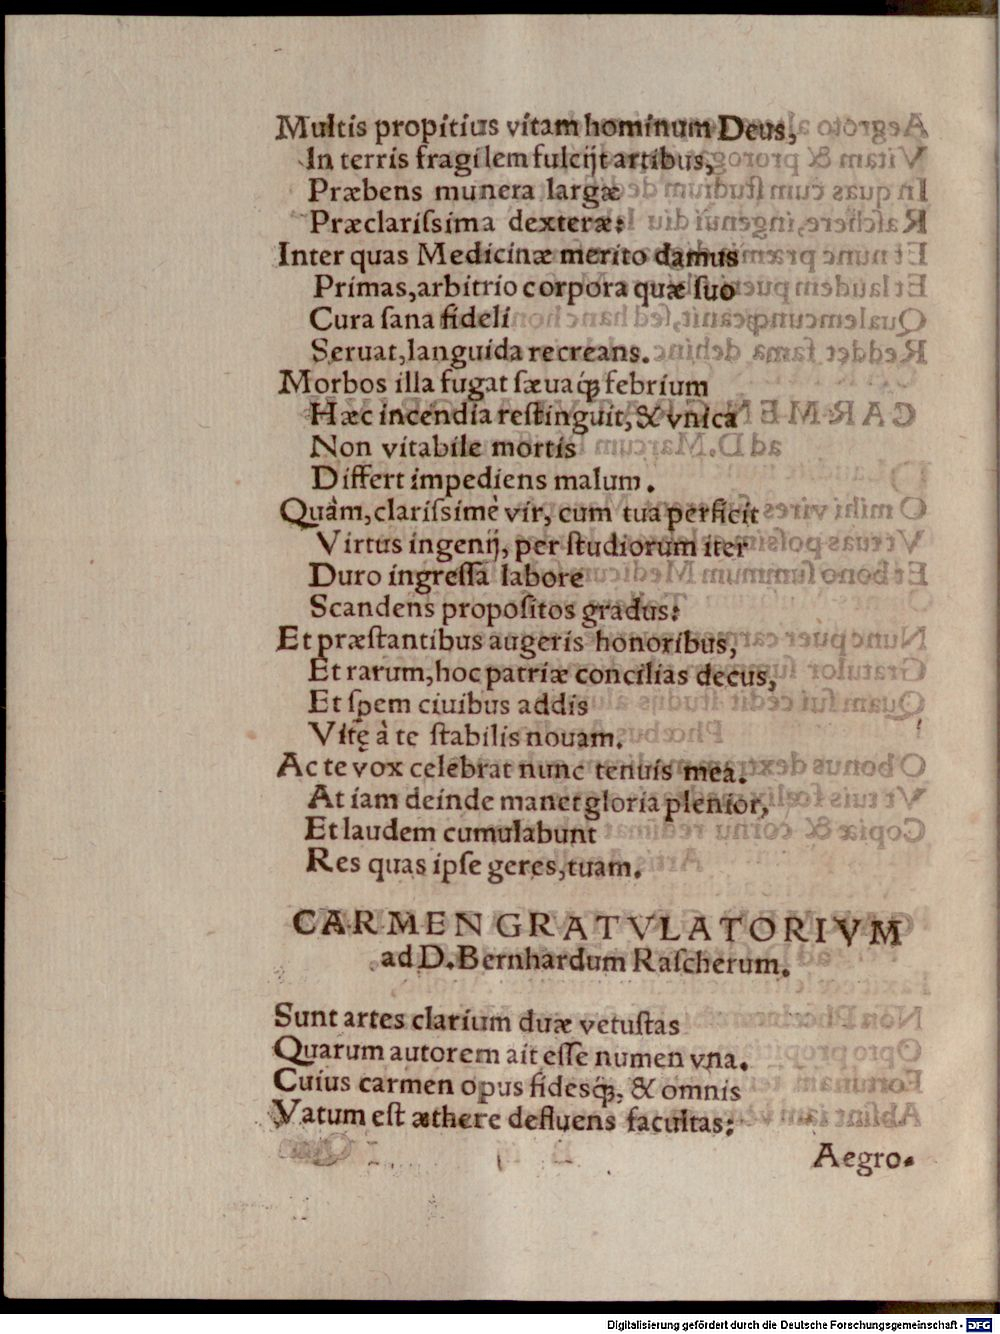 Multis propitius vitam hominum Deus,
In terris fragilem fulcijt artibus,
Præbens munera largæ
Præclariſsima dexteræ:
Inter quas Medicinæ merito damus
Primas, arbitrio corpora quæ ſuo
Cura ſana fideli
Seruat, languida recreans.
Morbos illa fugat ſæuaq́; febrium
Hæc incendia reſtinguit, & vnica
Non vitabile mortis
Differt impediens malum.
Quàm, clariſsimè vir, cum tua perficit
Virtus ingenij, per ſtudiorum iter
Duro ingreſſa labore
Scandens propoſitos gradus:
Et præſtantibus augeris honoribus,
Et rarum, hoc patriæ concilias decus,
Et ſpem ciuibus addis
Vitę à te ſtabilis nouam.
Ac te vox celebrat nunc tenuis mea.
At iam deinde manet gloria plenior,
Et laudem cumulabunt
Res quas ipſe geres, tuam.
CARMEN GRATVLATORIVM
ad D. Bernhardum Raſcherum.
Sunt artes clarium duæ vetuſtas
Quarum autorem ait eſſe numen vna.
Cuius carmen opus fidesq́;, & omnis
Vatum eſt æthere defluens facultas:
Aegro-
Digitalisierung gefördert durch die Deutsche Forschungsgemeinschaft - DFG